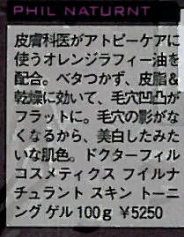 PHIL NATURNT
皮膚科医がアトピーケアに
使うオレンジラフィー油を
配合。ベタつかず、皮脂&
乾燥に効いて、毛穴凹凸が
フラットに。毛穴の影がな
くなるから、美白したみた
いな肌色。ドクターフィル
コスメティクス フイルナ
チュラント スキン トーニ
ングゲル 100g ¥5250